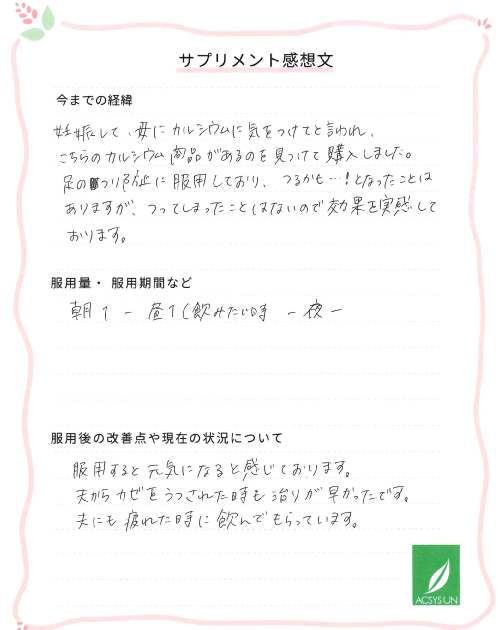 サプリメント感想文
今までの経緯
妊娠して、母にカルシウムに気をつけてと言われ、
こちらのカルシウム商品があるのを見つけて購入しました。
足のつり防止に服用しており、つるかも…!となったことは
ありますが、つってしまったことはないので効果を実感して
おります。
服用量・ 服用期間など
朝1 ー 昼1(飲みたい時 ー夜ー
服用後の改善点や現在の状況について
服用すると元気になると感じております。
夫からカゼをうつされた時も治りが早かったです。
夫にも疲れた時に飲んでもらっています。
ACSYSUN